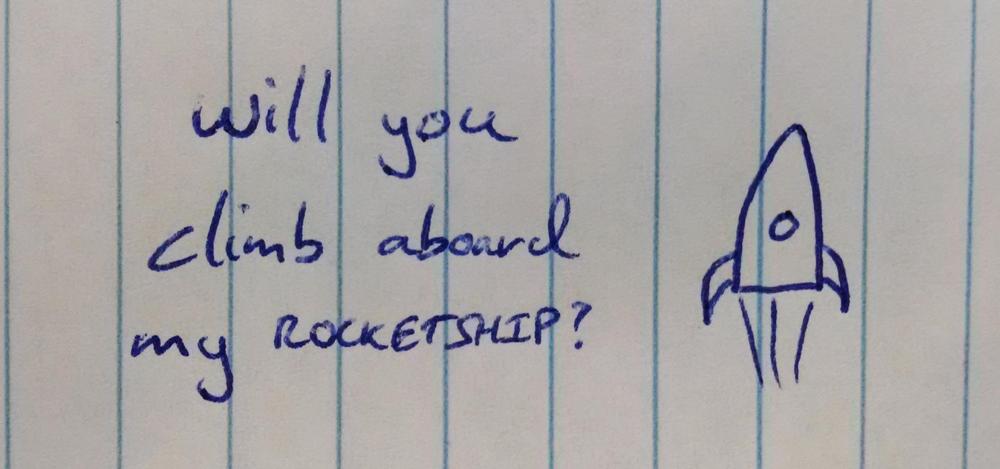 will you
climb aboard
my ROCKETSHIP?